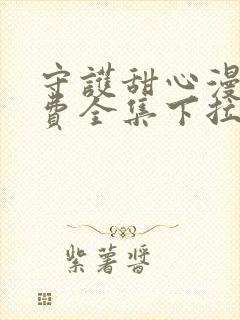 守護甜心漫
費全集下拉
紫薯醬